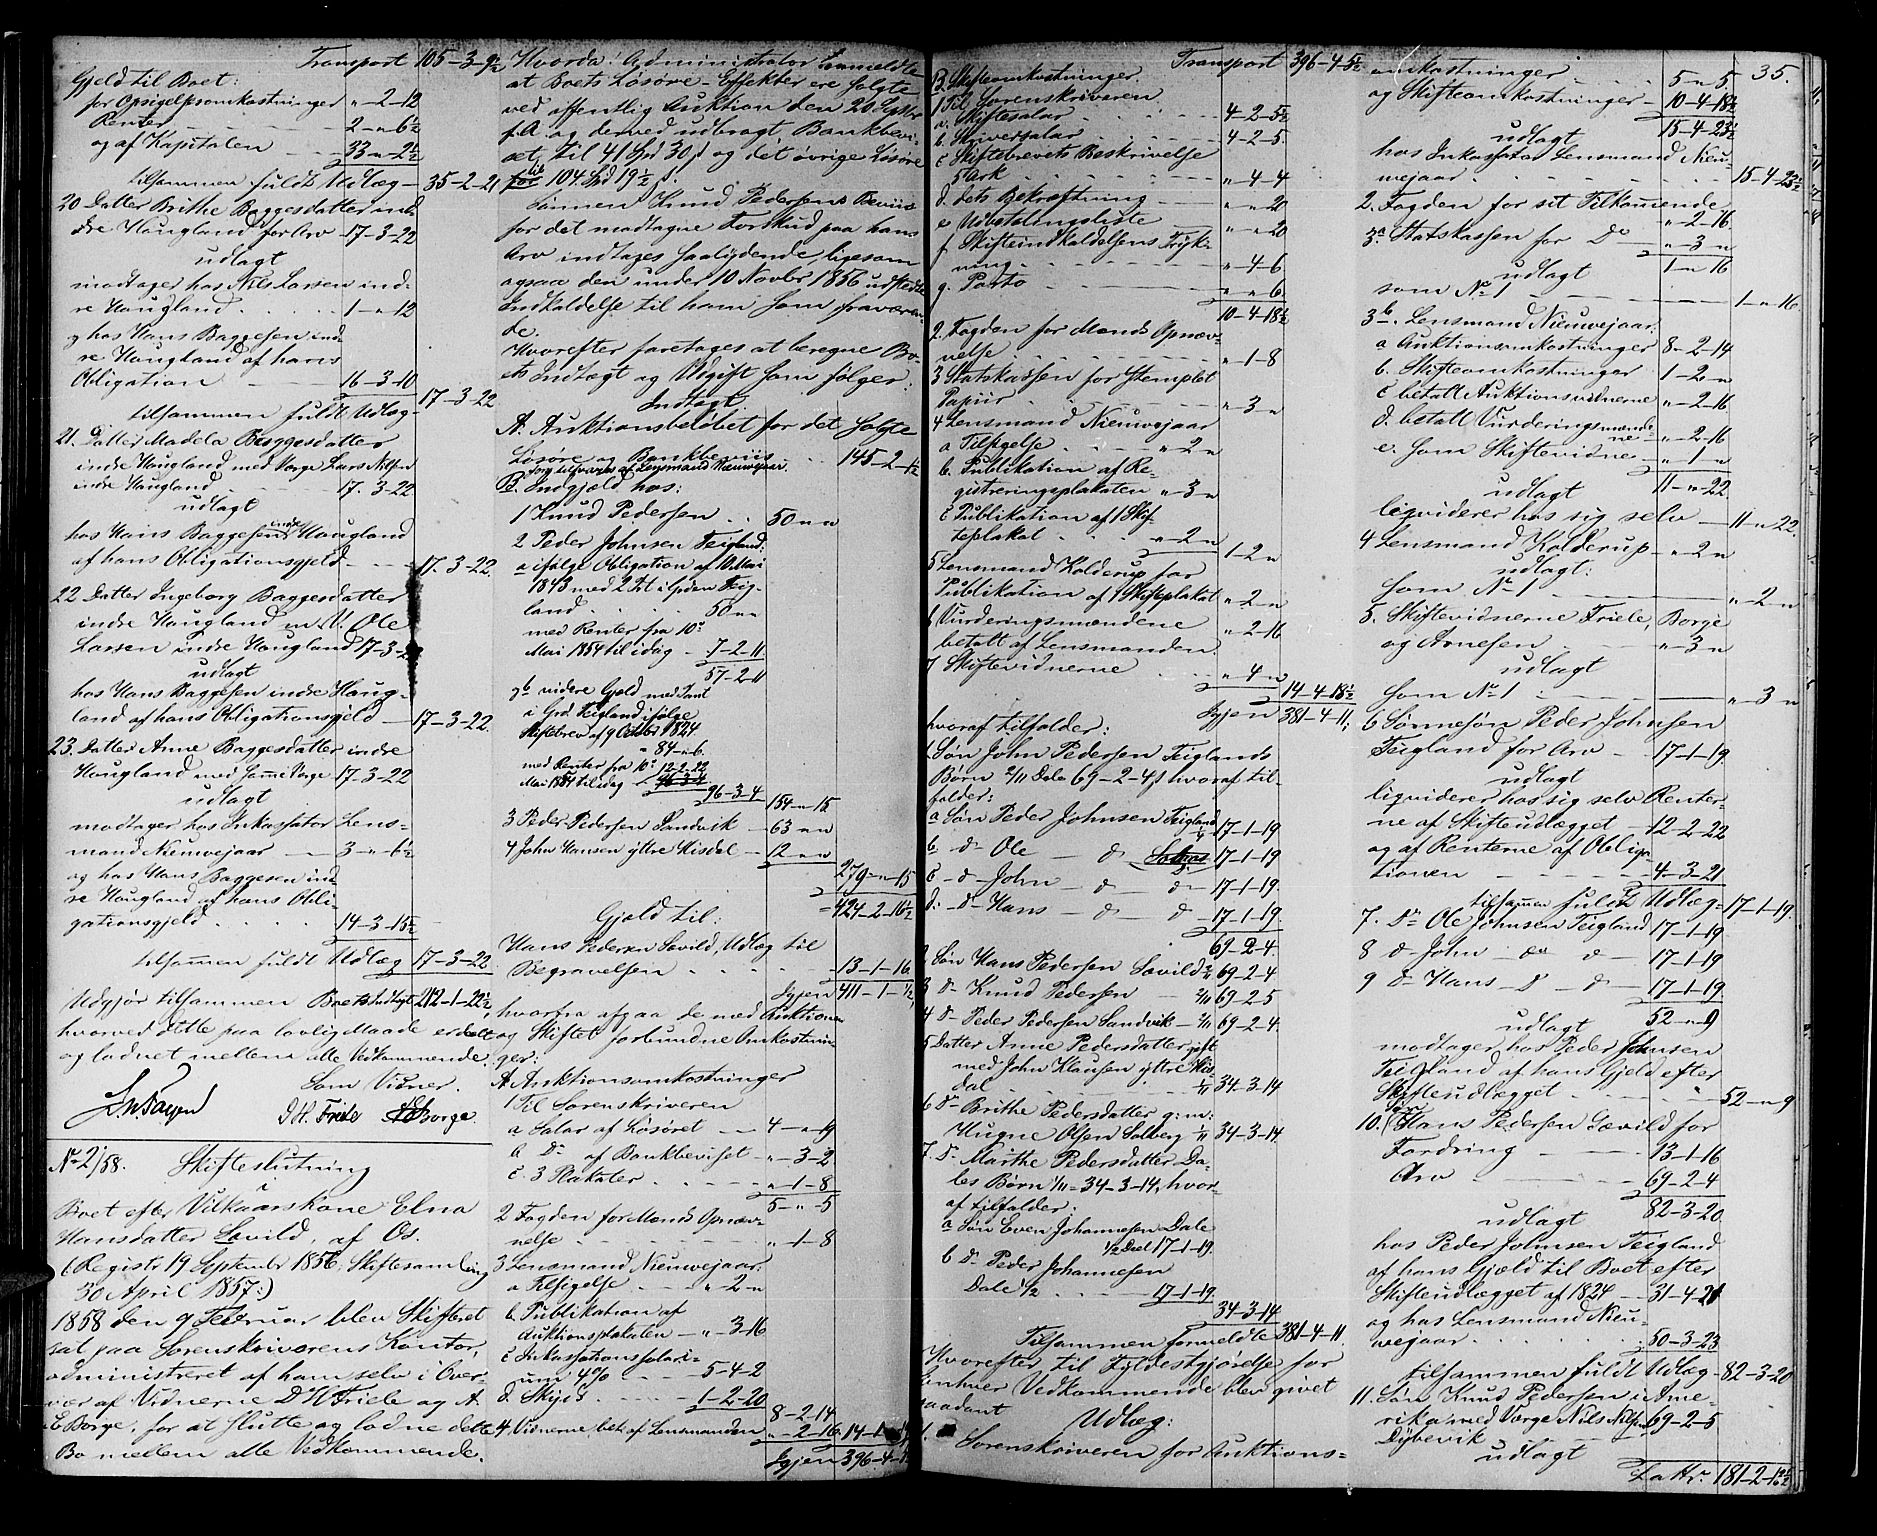 Transport 105-3-9½
Gjeld til Boet:
for Opsigelsesomkostninger „-2-12
Renter 2-„-6½
og af Kapitalen 33-„-2½
tilsammen fuldt Udlæg 35-2-21
20 Datter Brithe Baggesdatter in-
dre Haugland for Arv 17-3-22
udlagt
modtager hos Nils Larsen ind-
re Haugland 1-„-12
og hos Hans Baggesen ind-
re Haugland af hans
Obligation 16-3-10
tilsammen fuldt Udlæg 17-3-22
21. Datter Madela Baggesdatter
indre Haugland med Verge Lars Nilsen
indre Haugland 17-3-22
udlagt
hos Hans Baggesen indre Haugland
af hans Obligationsgjeld 17-3-22.
22 Datter Ingeborg Baggesdatter
indre Haugland m V: Ole
Larsen indre Haugland 17-3-22
udlagt
hos Hans Baggesen indre Haug-
land af hans Obligationsgjeld 17-3-22.
23. Datter Anne Baggesdatter indre
Haugland med samme Verge 17-3-22
udlagt
modtager hos Inkassator Lens-
mand Nieuwejaar 3-„-6½
og hos Hans Baggesen ind-
re Haugland af hans Obli-
gationsgjeld 14-3-15½
tilsammen fuldt Udlæg 17-3-22
Udgjør tilsammen Boets Indtægt 212-1-22½,
hvorved dette paa lovlig Maade er sluttet
og ladnet mellem alle Vedkommende.
Som Vidner.
D. H. Friele A E Borge.
No 2/58. Skifteslutning
i
Boet efter Vilkaarskone Elna
Hansdatter Søvild, af Os.
(Registr 19 September 1856, Skiftesamling
30 April 1857:)
1858 den 9 Februar blev Skifteret
sat paa Sorenskriverens Kontor,
administreret af ham selv i Over-
vær af Vidnerne D H Friele og A
E Borge, for at slutte og ladne dette
Bo mellem alle Vedkommende.
Hvorda: Administrator anmeldte
at Boets Løsøre-Effekter ere solgte
ved offentlig Auktion den 20 Septbr
f. A. og derved udbragt Bankbevi-
set til 41 Spd 30 s og det øvrige Løsøre
til 104 Spd 19½ s.
Sønnen Knud Pedersens Beviis
for det modtagne Forskud paa hans
Arv indtages saalydende, ligesom
ogsaa den under 10 Novbr 1856 udstedte
Indkaldelse til ham som fraværen-
de.
Hvorefter foretages at beregne Bo-
ets Indtægt og Udgift som følger:
Indtægt
A. Auktionsbeløbet for det solgte
Løsøre og Bankbeviis 145-2-1½
som tilsvares af Lensmand Nieuwejaar.
B. Indgjeld hos:
1 Knud Pedersen 50-„-„
2 Peder Johnsen Teigland:
a ifølge Obligation af 10 Mai
1843 med 2 Pt i Gaarden Teig-
land 50-„-„
med Renter fra 10de
Mai 1854 til idag 7-2-11
57-2-11
b videre Gjeld med Pant
i Grd Teigland ifølge
Skiftebrev af 9 Octbr 1824
84-„-6.
med Renter fra 10de 12-2-22
Mai 1854 til idag
96-3-4 154-„-15
3 Peder Pedersen Sandvik 63-„-„
4 John Hansen yttre Hisdal 12-„-„
279-„-15
424-2-16½
Gjeld til:
Hans Pedersen Søvild, Udlæg til
Begravelsen 13-1-16
Igjen 411-1-½,
hvorfra afgaa de med Auktionen
og Skiftet forbundne Omkostnin-
ger:
A. Auktionsomkostninger
1 Til Sorenskriveren
a Salar af Løsøret 4-„-19
b Do af Bankbeviset „-3-2
c. 3 Plakater „-1-8
5-„-5
2 Fogden for Mands Opnæv-
nelse „-1-8
3 Lensmand Nieuwejaar:
a Tilsigelse „-2-„
b Publikation af
Auktionsplakaten „-3-16
c Inkassationssalari-
um 4% 5-4-2
d. Skyds 1-2-20
8-2-14
4. Vidnerne bet: af Lensmanden „-2-16 14-1-19
Igjen 396-4-5½
Transport 396-4-5½
B. Skifteomkostninger.
1 Til Sorenskriveren
a. Skiftesalar 4-2-5½
b. Skriversalar 4-2-5
c Skiftebrevets Beskrivelse
5 Ark „-4-4
d dets Bekræftning „-„-20
e Udbetalingsliste „-„-20
f Skifteindkaldelsens Tryk-
ning „-4-6
g. Porto „-„-6
10-4-18½
2. Fogden for Mands Opnæv-
nelse „-1-8
3 Statskassen for stemplet
Papiir „-3-„
4 Lensmand Nieuwejaar
a Tilsigelse „-2-„
b. Publikation af Re-
gistreringsplakaten „-3-„
c Publikation af 1 Skif-
teplakat „-2-„
1-2-„
5 Lensmand Kolderup for
Publikation af 1 Skifteplakat „-2-„
6 Vurderingsmændene
betalt af Lensmanden „-2-16
7 Skiftevidnerne „-4-„
14-4-18½
Igjen 381-4-11,
hvoraf tilfalder:
1. Søn John Pedersen Teiglands
Børn 2/11 Dele 69-2-4 s hvoraf til-
falder:
a Søn Peder Johnsen Teigland 17-1-19
b do Ole - do 17-1-19
c - do John - do - do 17-1-19.
d: - do Hans - do - do 17-1-19.
69-2-4.
2 Søn Hans Pedersen Søvild 2/11 69-2-4
3 Do Knud Pedersen 2/11 69-2-5
4 Do Peder Pedersen Sandvik 2/11 69-2-4.
5 Datter Anne Pedersdatter gift
med John Klausen yttre His-
dal 1/11 34-3-14
6 Do Brithe Pedersdatter g: m:
Mugne Olsen Solberg 1/11 34-3-14.
7. Do Marthe Pedersdatter Da-
les Børn 1/11 34-3-14, hvor-
af tilfalder:
a Søn Even Johannesen Dale
1/2 Deel 17-1-19.
b Do Peder Johannesen
Dale 1/2 17-1-19.
34-3-14
Tilsammen formeldte 381-4-11
Hvorefter til Fyldestgjørelse for
enhver Vedkommende blev givet
saadant
Udlæg:
1. Sorenskriveren for Auktions-
35.
omkostninger 5-„-5
og Skifteomkostninger 10-4-18½
15-4-23½
udlagt
hos Inkassator Lensmand Nieu-
wejaar 15-4-23½
2. Fogden for sit Tilkommende „-2-16
3a. Statskassen for Do „-3-„
1-„-16
udlagt
som No 1 1-„-16
3b. Lensmand Nieuwejaar:
a Auktionsomkostninger 8-2-14
b. Skifteomkostninger 1-2-„
c betalt Auktionsvidnerne „-2-16
d. betalt Vurderingsmænde-
ne „-2-16
e. som Skiftevidne „-1-„
11-„-22.
udlagt
liqviderer hos sig selv 11-„-22.
4 Lensmand Kolderup „-2-„
udlagt:
som No 1 „-2-„
5. Skiftevidnerne Friele, Borge
og Arnesen „-3-„
udlagt
som No 1 „-3-„
6 Sønnesøn Peder Johnsen
Teigland for Arv 17-1-19.
udlagt
liqviderer hos sig selv Renter-
ne af Skifteudlægget 12-2-22
og af Renterne af Obliga-
tionen 4-3-21
tilsammen fuldt Udlæg 17-1-19.
7. Do Ole Johnsen Teigland 17-1-19
8 do John do do 17-1-19
9 do Hans do do 17-1-19
52-„-9
udlagt
modtager hos Peder Johnsen
Teigland af hans Gjeld efter
Skifteudlægget 52-„-9
10. Søn Hans Pedersen Søvild for
Fordring 13-1-16
Arv 69-2-4
82-3-20.
udlagt
hos Peder Johnsen Teigland
af hans Gjeld til Boet efter
Skifteudlægget af 1824 31-4-21
og hos Lensmand Nieu-
wejaar 50-3-23
tilsammen fuldt Udlæg 82-3-20
11. Søn Knud Pedersen i Ame-
rika med Verge Nils Nilsen
Dybevik 69-2-5
udlagt
Latus 181-2-16½